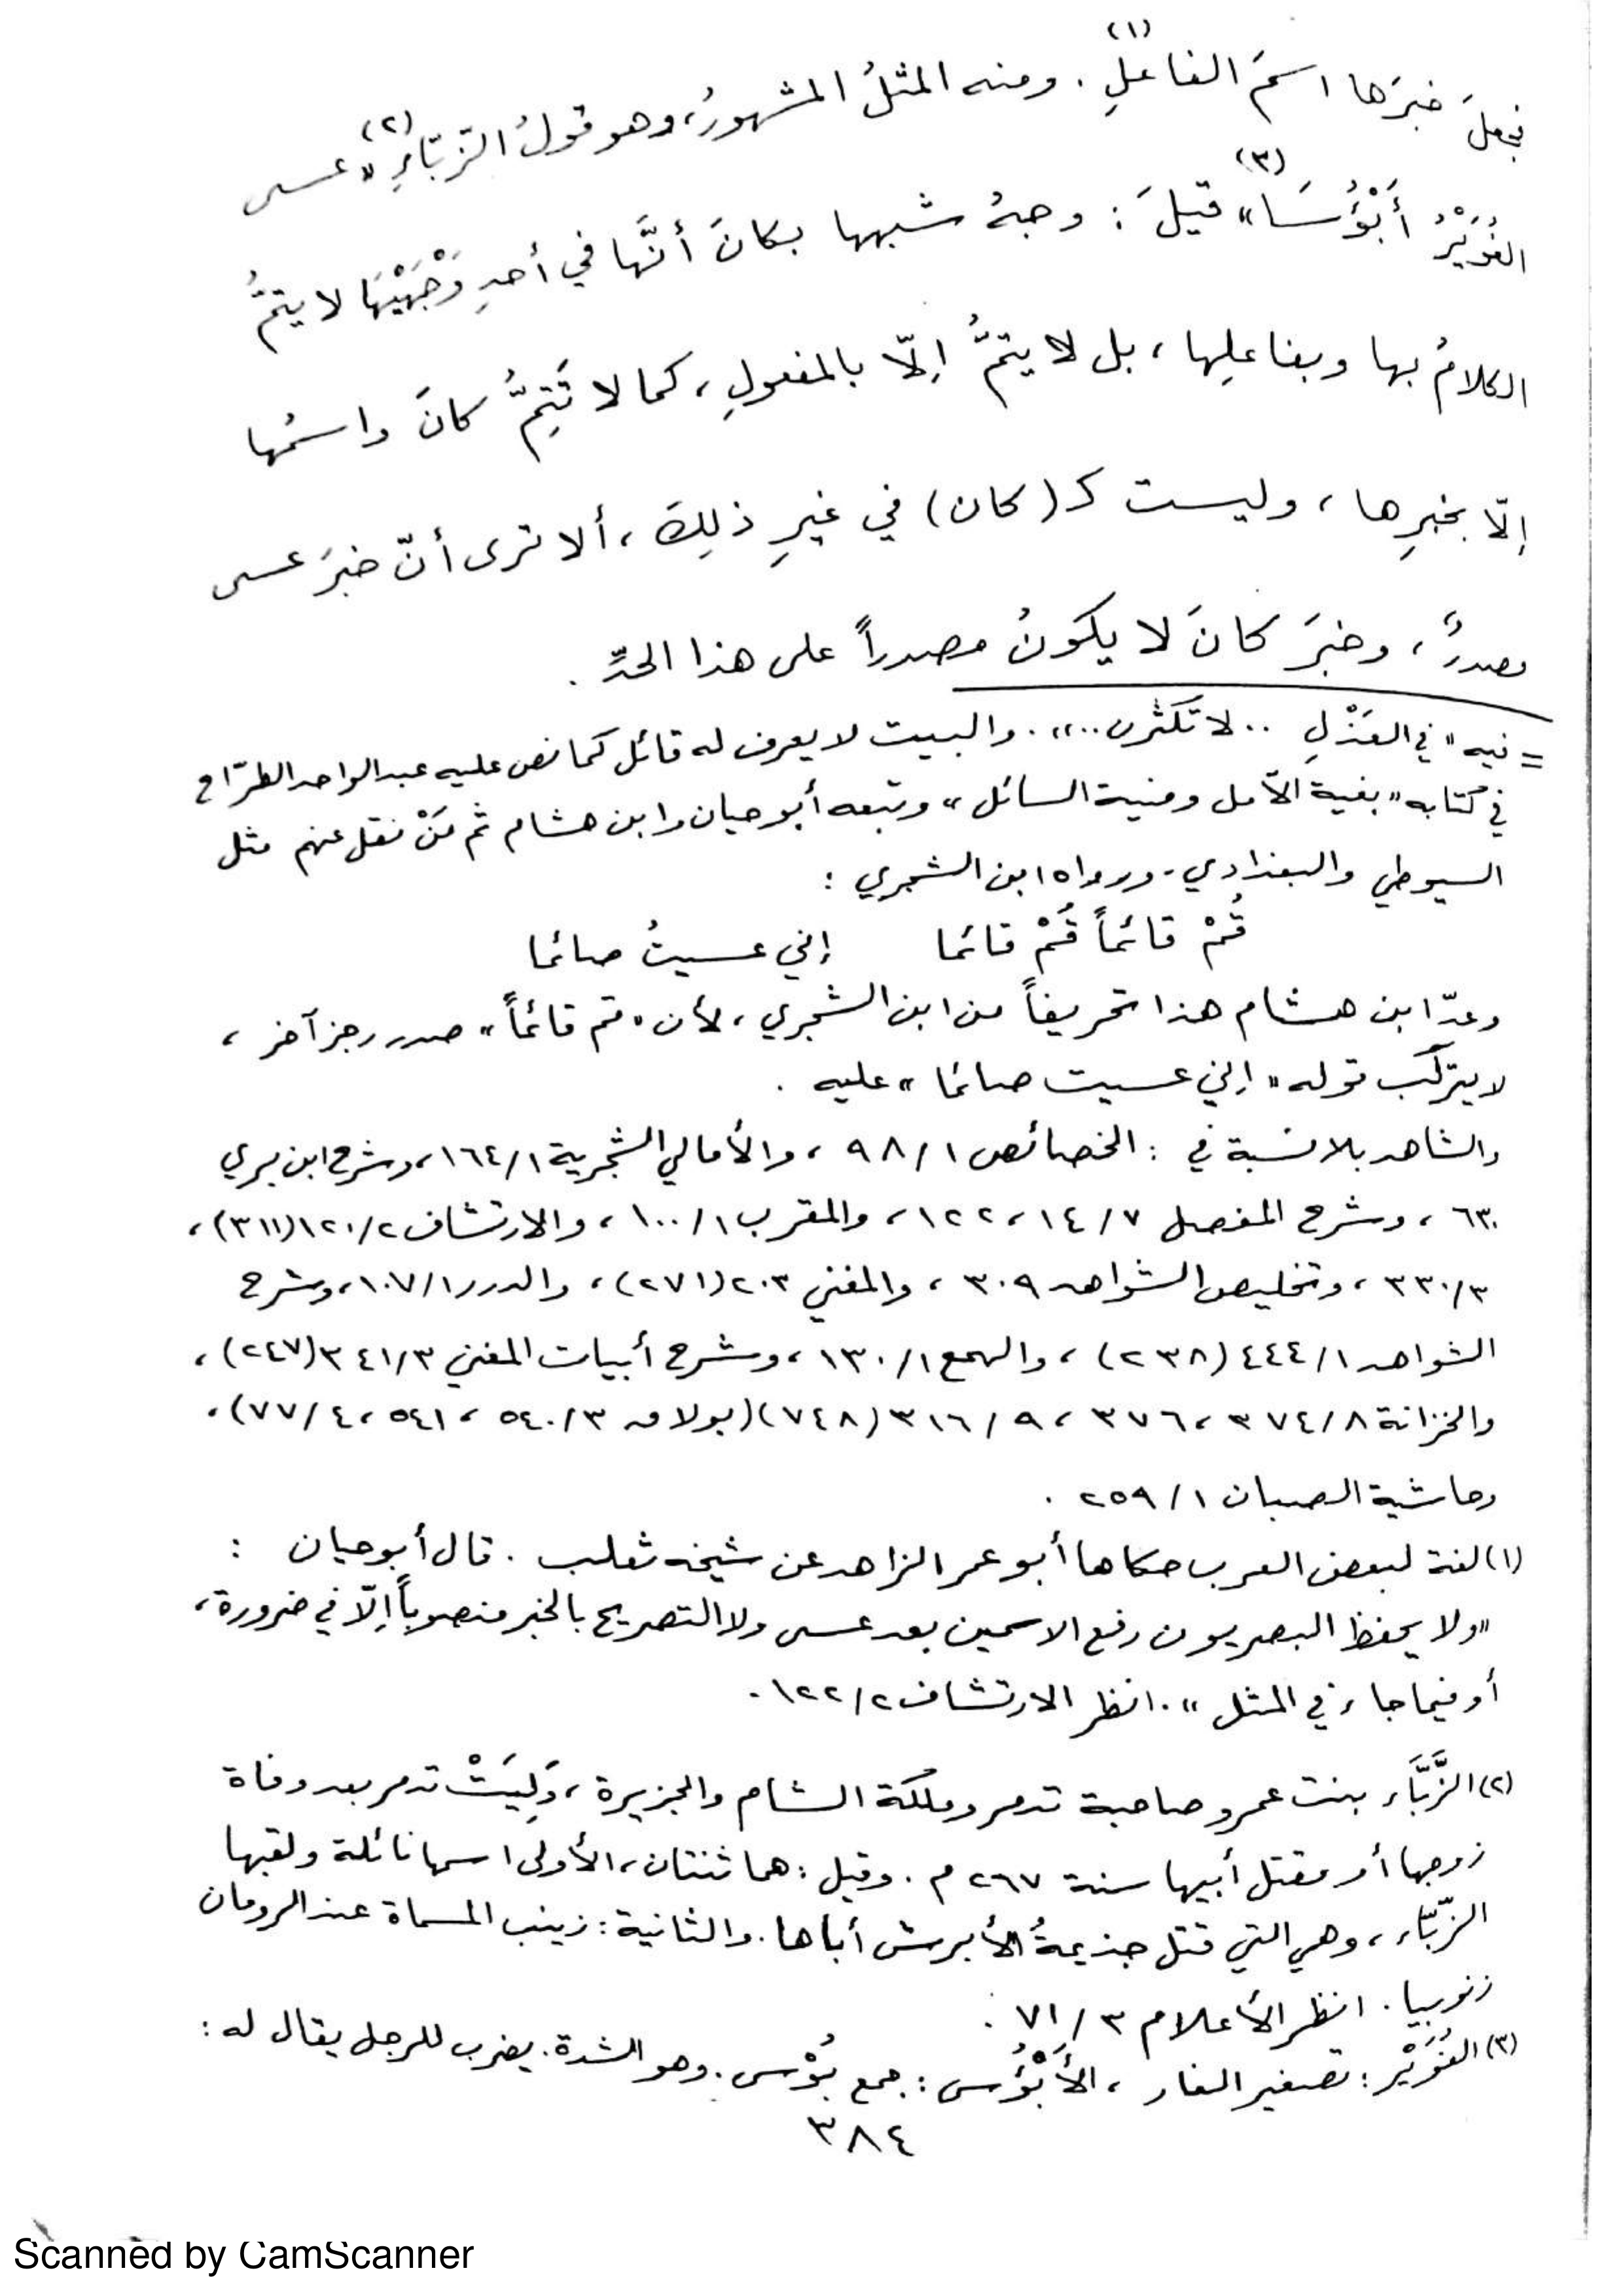 فجعلَ خبرَها اسمَ الفاعلِ(١). ومنه المثلُ المشهورُ، وهو قولُ الزّبّاءِ(٢) «عسى
الغُوَيْرُ أَبْؤُسَا»(٣) قيلَ: وجهُ شبهها بكانَ أنَّها في أحدِ وَجْهَيْهَا لا يتمُّ
الكلامُ بها وبفاعلِها، بل لا يتمُّ إلّا بالمفعولِ، كما لا تَتِمُّ كانَ واسمُها
إلّا بخبرِها، وليست كـ(كان) في غيرِ ذلِكَ، ألا ترى أنّ خبرَ عسى
مصدرٌ، وخبرَ كانَ لا يكونُ مصدراً على هذا الحدِّ.
= فيه «في العَذْلِ .. لا تَكثرن ..». والبيت لا يعرف له قائل كما نص عليه عبدالواحد الطرّاح
في كتابه «بغية الآمل ومنية السائل» وتبعه أبو حيان وابن هشام ثم مَنْ نقل عنهم مثل
السيوطي والبغدادي. ورواه ابن الشجري:
قُمْ قائماً قُمْ قائما إني عسيتُ صائما
وعدّ ابن هشام هذا تحريفاً من ابن الشجري، لأن «قم قائماً» صدر رجز آخر،
لا يتركّب قوله «إني عسيت صائما» عليه.
والشاهد بلا نسبة في: الخصائص ٩٨/١، والأمالي الشجرية ١٦٤/١، وشرح ابن بري
٦٣٠، وشرح المفصل ١٤/٧، ١٢٢، والمقرب ١٠٠/١، والارتشاف ١٢٠/٢(٣١١)،
٣٣٠/٣، وتخليص الشواهد ٣٠٩، والمغني ٢٠٣(٢٧١)، والدرر ١٠٧/١، وشرح
الشواهد ٤٤٤/١ (٢٣٨)، والهمع ١٣٠/١، وشرح أبيات المغني ٣٤١/٣(٢٤٧)،
والخزانة ٣٧٤/٨، ٣٧٦، ٣١٦/٩(٧٤٨)(بولاق ٥٤٠/٣، ٥٤١، ٧٧/٤)،
وحاشية الصبان ٢٥٩/١.
(١) لغة لبعض العرب حكاها أبو عمر الزاهد عن شيخه ثعلب. قال أبو حيان:
«ولا يحفظ البصريون رفع الاسمين بعد عسى ولا التصريح بالخبر منصوباً إلّا في ضرورة،
أو فيما جاء في المثل». انظر الارتشاف ١٢٢/٢.
(٢) الزَّبَّاء بنت عمرو صاحبة تدمر وملكة الشام والجزيرة، وَلِيَتْ تدمر بعد وفاة
زوجها أو مقتل أبيها سنة ٢٦٧ م. وقيل: هما ثنتان، الأولى اسمها نائلة ولقبها
الزّبّاء، وهي التي قتل جذيمةُ الأبرش أباها. والثانية: زينب المسماة عند الرومان
زنوبيا. انظر الأعلام ٧١/٣.
(٣) الغُوَيْر: تصغير الغار، الأَبْؤُس: جمع بُؤْس. وهو الشدة. يضرب للرجل يقال له:
٣٨٤
Scanned by CamScanner